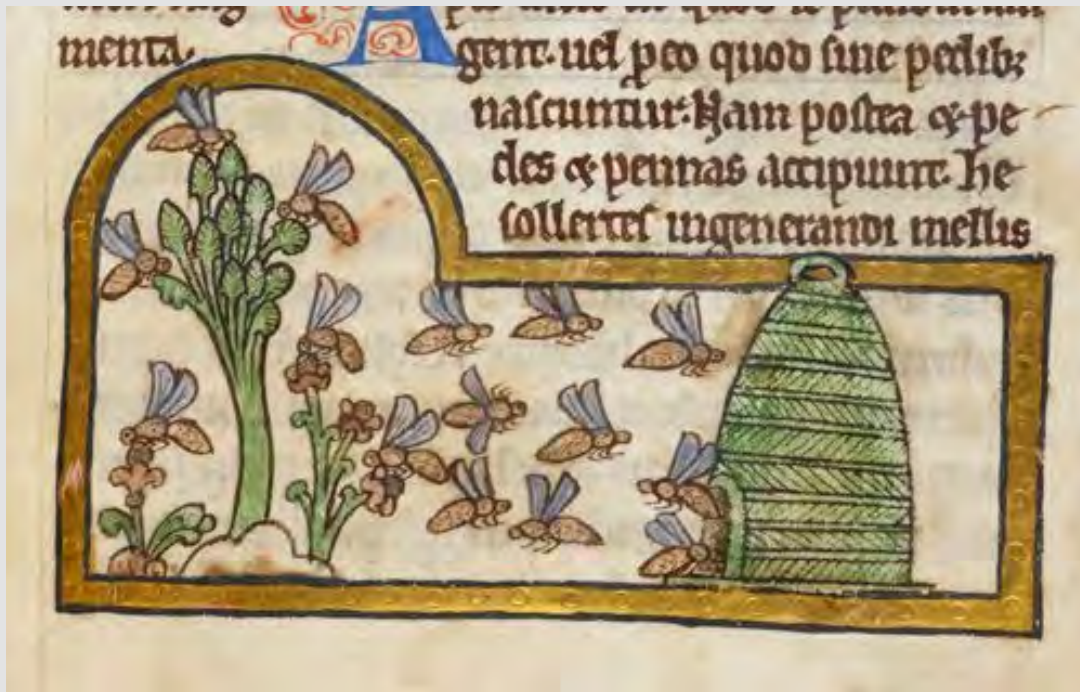 A
menta. gent. uel ꝓeo quod sine pedibꝫ
nascuntur. Nam postea & pe
des & pennas accipiunt. he
sollertes ingenerandi mellis